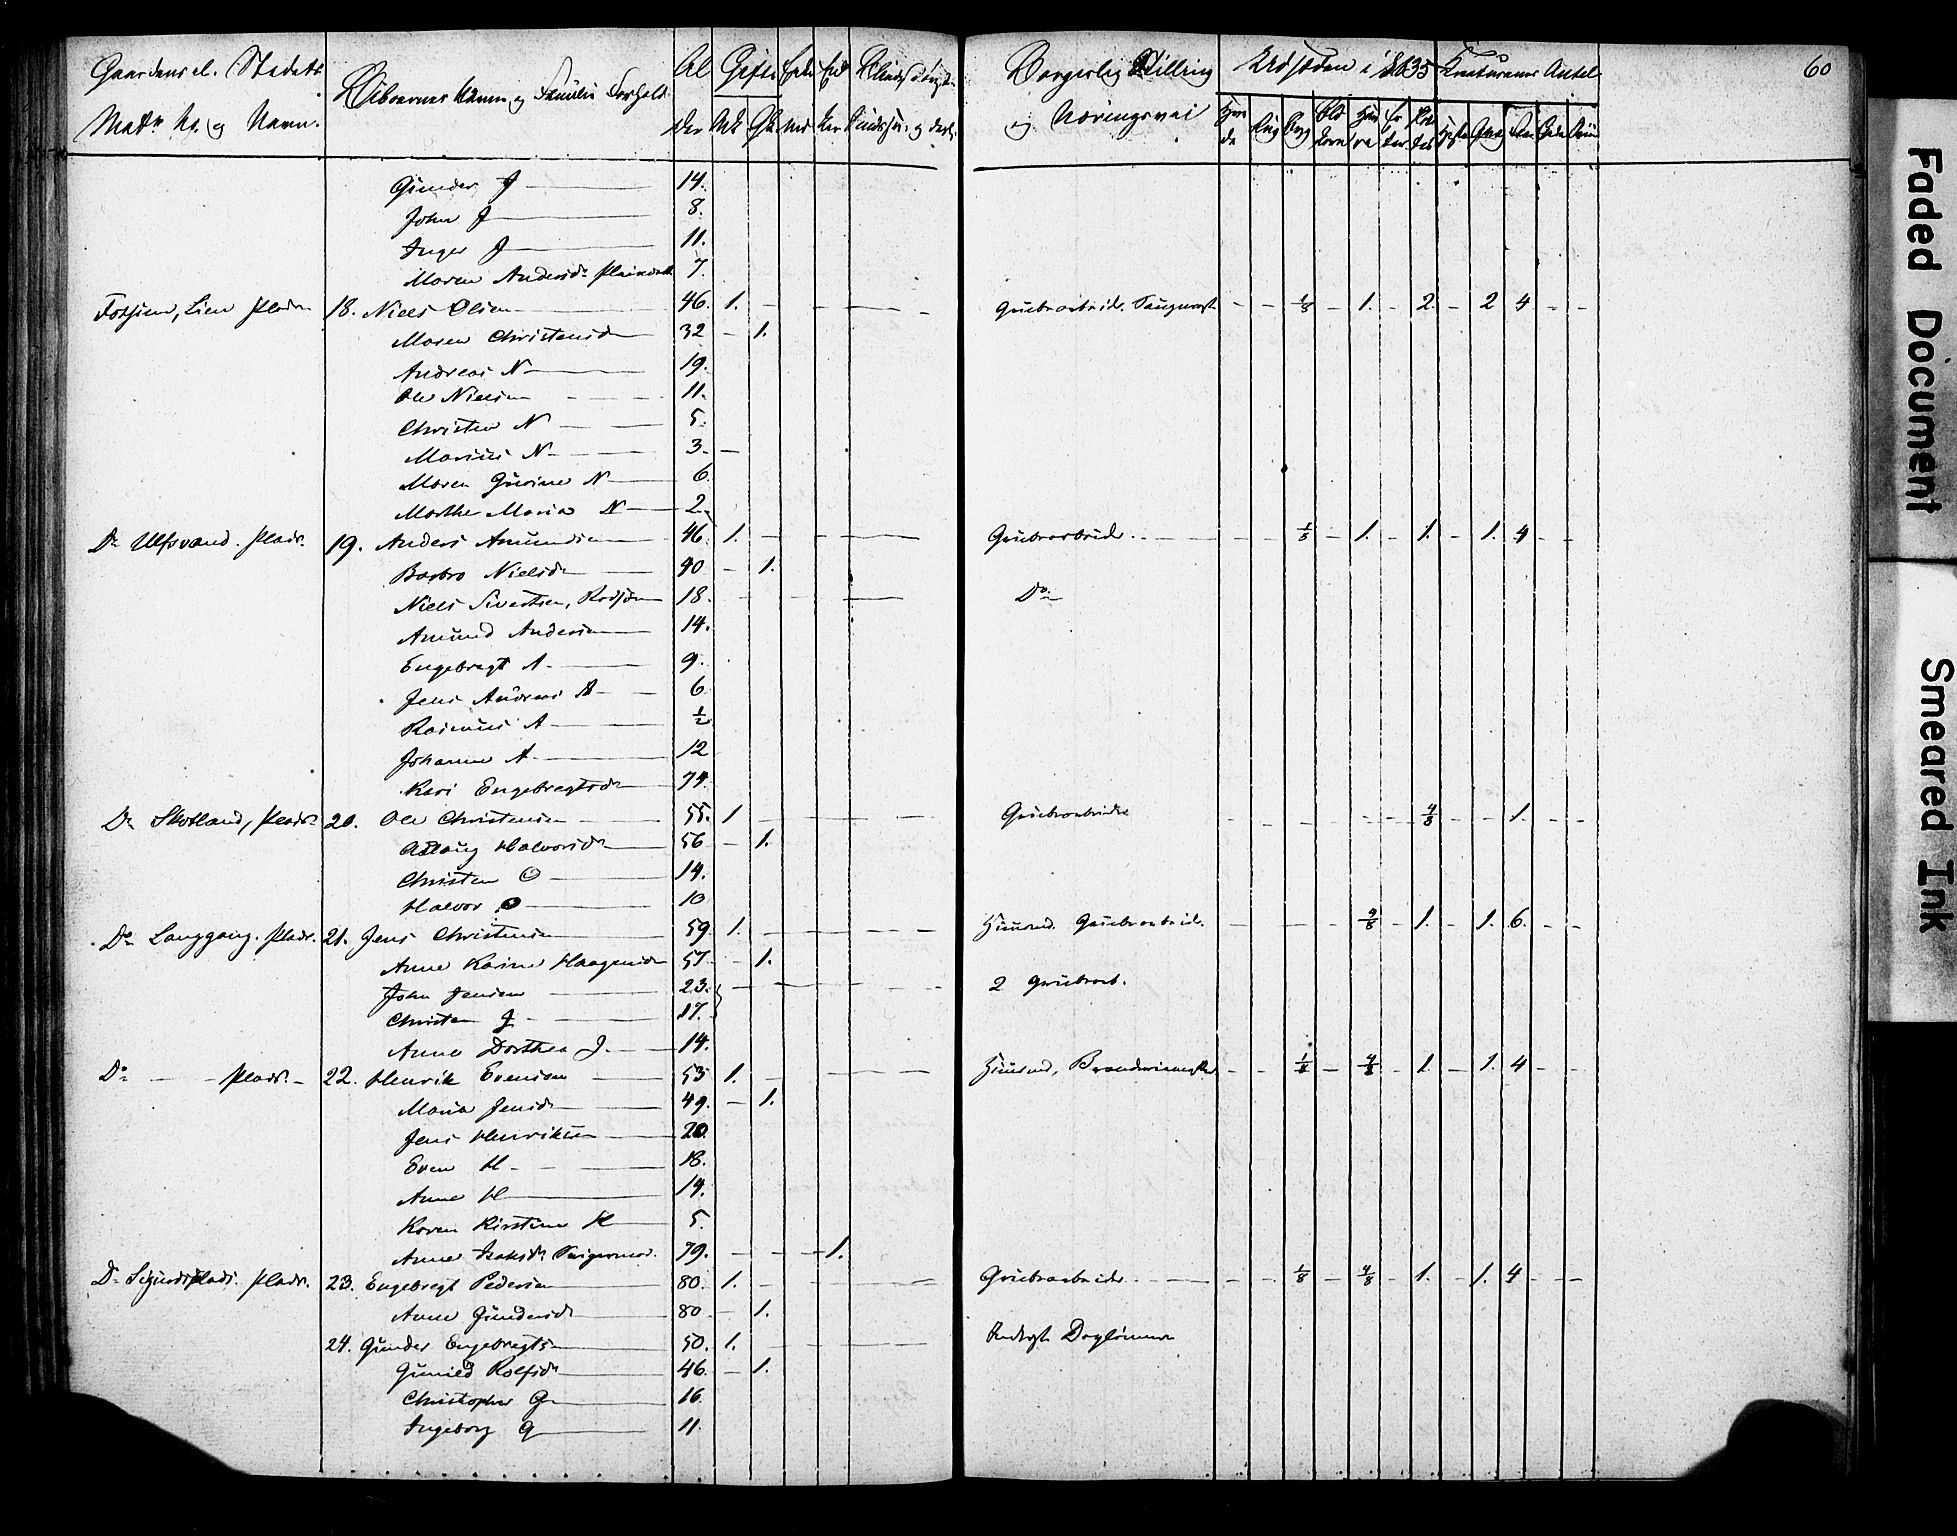 Gaardens el. Stedets Matr. No. og Navn. Beboernes Navn og Familie Forhold Alder Gifte Mk Qk Enkemænd Enker Blinde Borgerlig Stilling og Næringsvei Udsæden i 1835 Kreaturenes Antal 60
Hvede Rug Byg Havre Erter Poteter Heste
Gunder J 14.
John J 8.
Inger J 11.
Maren Andersdr 7.
Fossum, Lien Plads 18. Niels Olsen 46. 1. Grubearbeider 1/8 1. 2. 2 4
Maren Christensdr 32 1.
Andreas N 19.
Ole Nielsen 11.
Christen N 5.
Marius N 3.
Maren Gurine N 6
Marthe Maria N 2.
Do Ulfsvand Plads. 19. Anders Amundsen 46. 1. Grubearbeider 1/8 1. 1. 1. 4
Barbro Nielsdr 40 1.
Niels Sivertsen, 18. Do
Amund Andersen 14.
Engebregt A 9.
Jens Andreas A 6
Rasmus A 1/2
Johanne A. 12
Kari Engebregtsdr 74.
Do Skotland, Plads 20. Ole Christensen 55. 1 Grubearbeider 4/8 1.
Aslaug Halvorsdr 56 1.
Christen O 14.
Halvor O 10
Do Langgang. Plads. 21. Jens Christensen 59. 1. Huusmd. Grubearbeid. 4/8 1. 1. 6.
Anne Karine Haagensdr 57 1.
John Jensen 23. 2 Grubearb.
Christen J 17.
Anne Dorthea J. 14.
Do Plads. 22. Henrik Evensen 53 1. Huusmd, 1/8 4/8 1. 1. 4
Maria Jensdr 49. 1.
Jens Henriksen 20.
Even H 18.
Anne H 14.
Karen Kirstine H 5.
Anne Isaksdr 79. 1.
Do Plads. 23. Engebregt Pedersen 80. 1. Grubearbeider 1/8 4/8 1. 1. 4
Anne Gundersdr 80 1.
24. Gunder Engebregtsen 50. 1. Daglønner
Gunild Rolfsdr 46. 1.
Christopher G 16
Ingeborg G 11
Faded Document
Smeared Ink